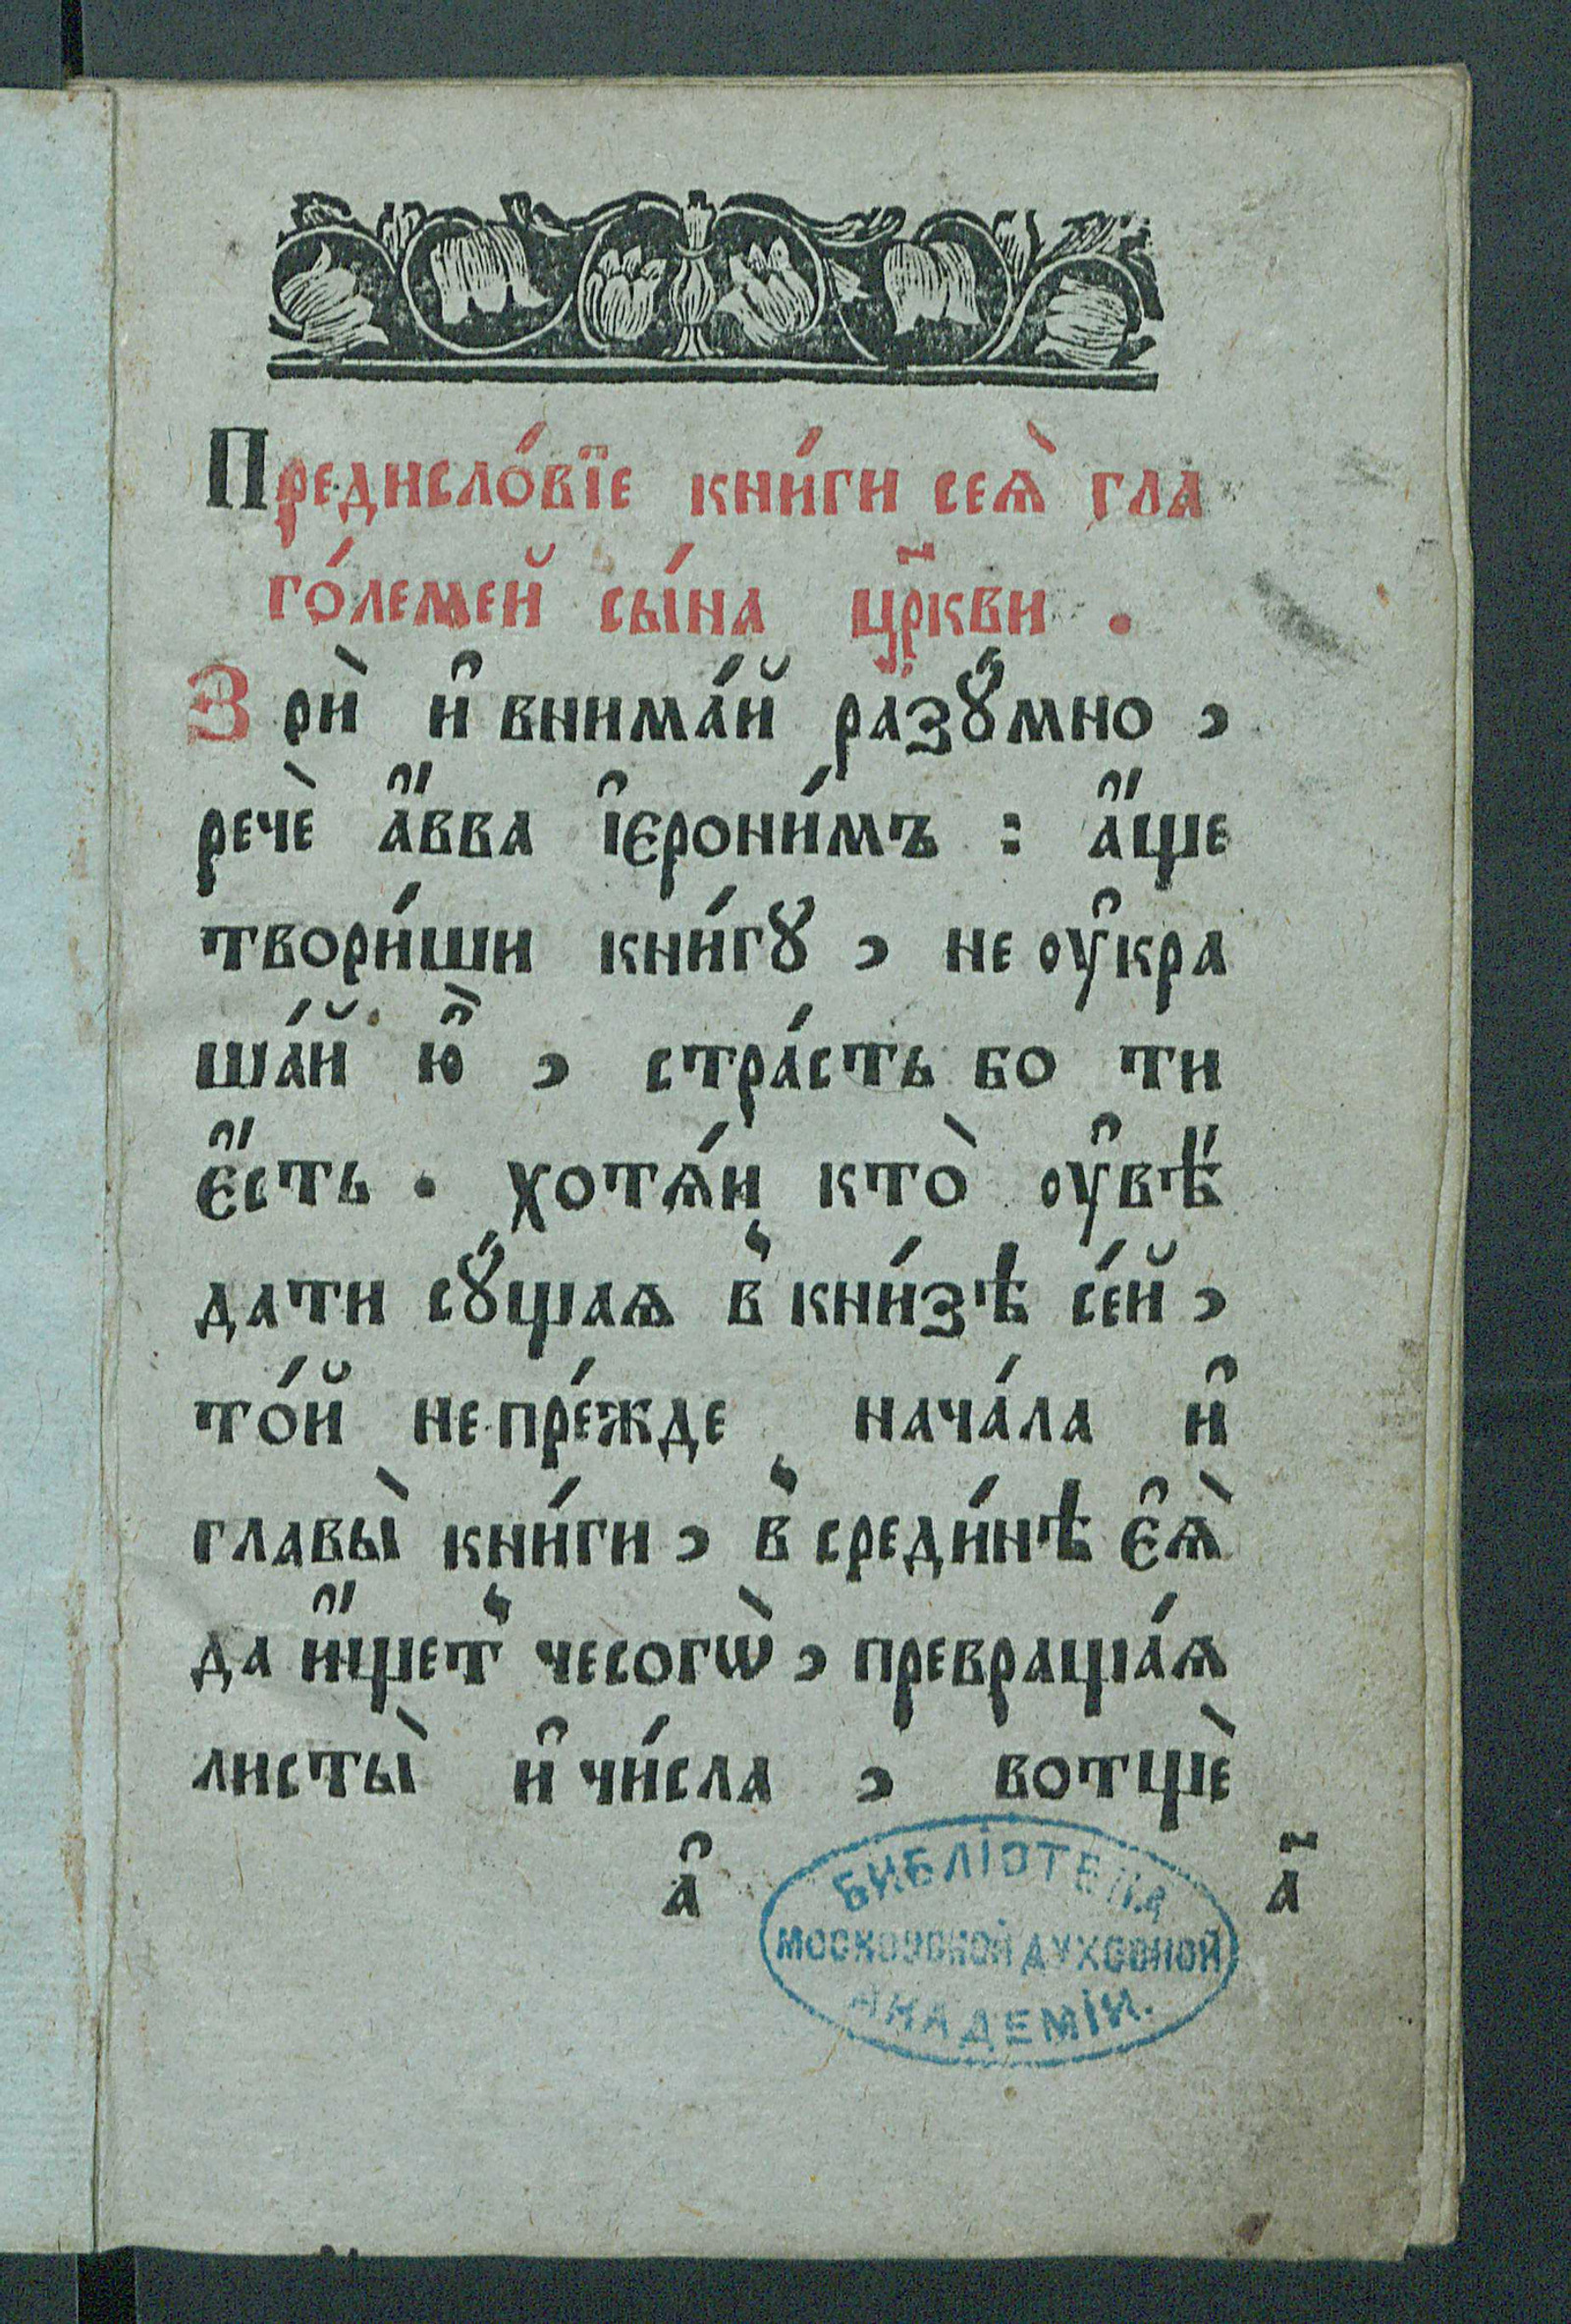 Предисло́вїе кни́ги сеѧ̀ гла
го́лемей сы́на цр҃кви .
Зрѝ и҆ внима́й разꙋ́мно ,
речѐ а҆́вва і҆єрони́мъ : а҆́ще
твори́ши кни́гꙋ , не оу҆кра
ша́й ю҆̀ , стра́сть бо ти
є҆́сть . хотѧ́и кто̀ оу҆вѣ́
дати сꙋ́щаѧ в̾ кни́зѣ се́й ,
то́й не пре́жде нача́ла и҆
главы̀ кни́ги , в̾ среди́нѣ є҆ѧ̀
да и҆́щет̾ чесогѡ̀ , превраща́ѧ
листы̀ и҆ чи́сла , вотщѐ
а҆ а҃
БИБЛІОТЕКА
МОСКОВСКОЙ ДУХОВНОЙ
АКАДЕМІИ.